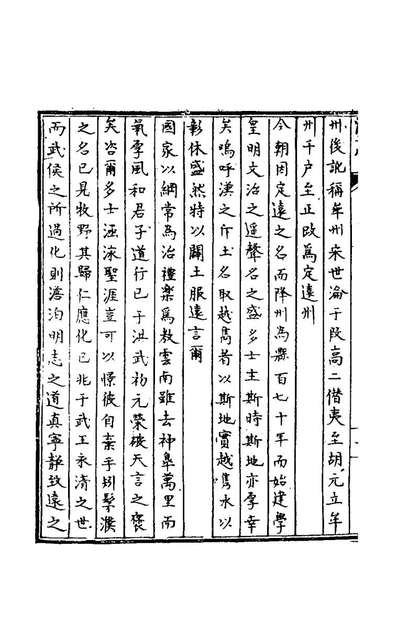 州後訛稱牟州宋世淪于段高二僭夷至胡元立牟
州千户至正改爲定遠州
今朝因定遠之名而降州爲縣百七十年而始建學
皇明文治之遥聲名之盛多士主斯時斯地亦孚幸
矣嗚呼漢之作土名取越雟者以斯地實越雟水以
彰休盛然特以闢土服遠言爾
國家以綱常爲治禮樂爲教雲南雖去神臯萬里而
氣孚風和君子道行已于洪武初元榮被天言之褒
矣咨爾多士涵泳聖涯豈可以憬彼自棄乎矧髳濮
之名已見牧野其歸仁應化已兆于武王永清之世
而武侯之所過化則澹泊明志之道真寧靜致遠之